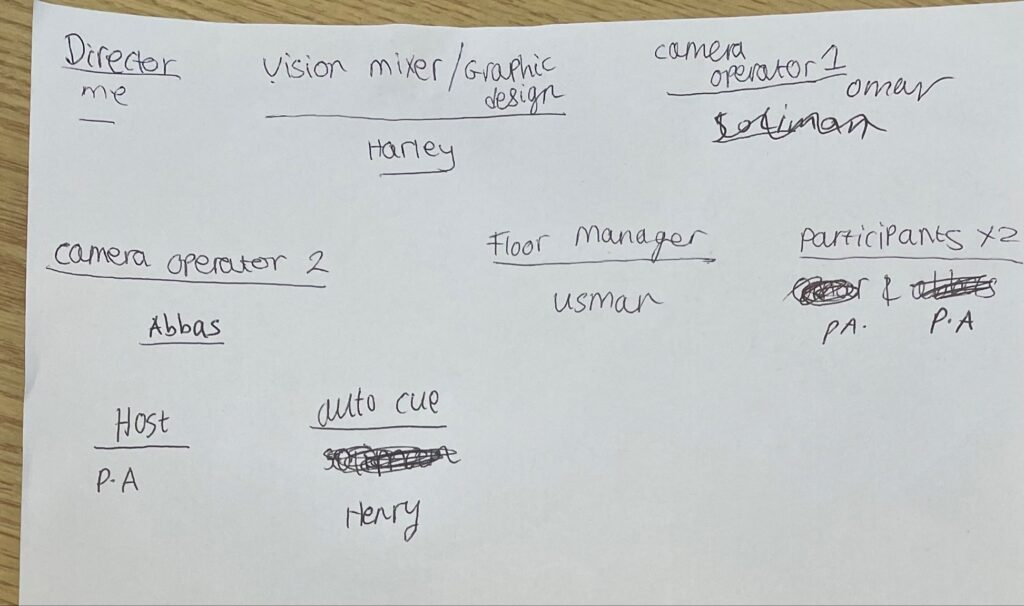 Director
me
Vision mixer/Graphic
design
Harley
camera
operator 1
omar
Soliman
camera operator 2
Abbas
Floor manager
usman
participants x2
&
PA. P.A
Host
P.A
auto cue
Henry